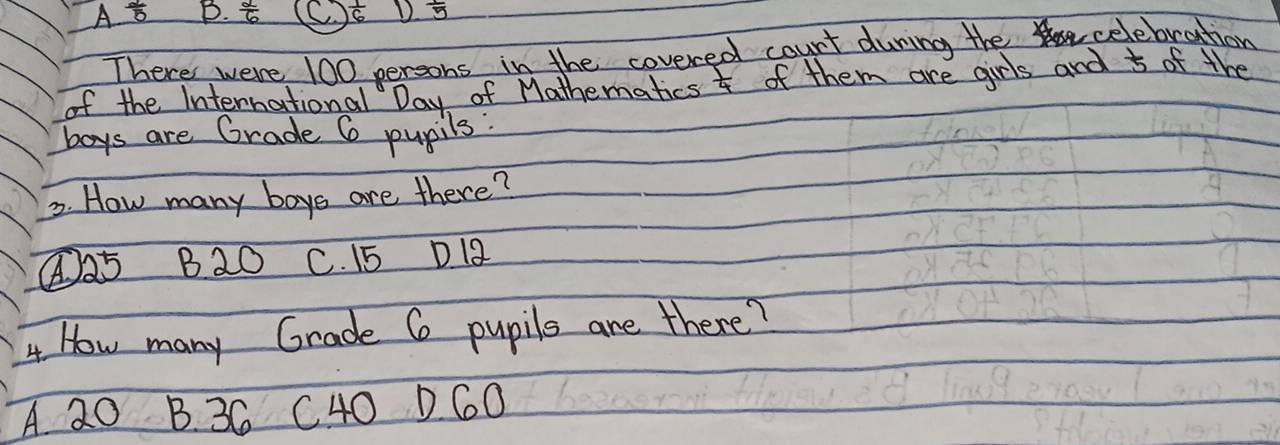 A B. (C.) 1/6 D. 1/5
There were 100 persons in the covered court during the celebration
of the International Day of Mathematics 1/4 of them are girls and 1/5 of the
boys are Grade 6 pupils.
3. How many boys are there?
A.)25 B.20 C.15 D.12
4. How many Grade 6 pupils are there?
A. 20 B.36 C.40 D.60